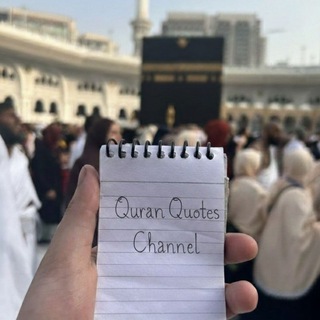 Quran Quotes
Channel